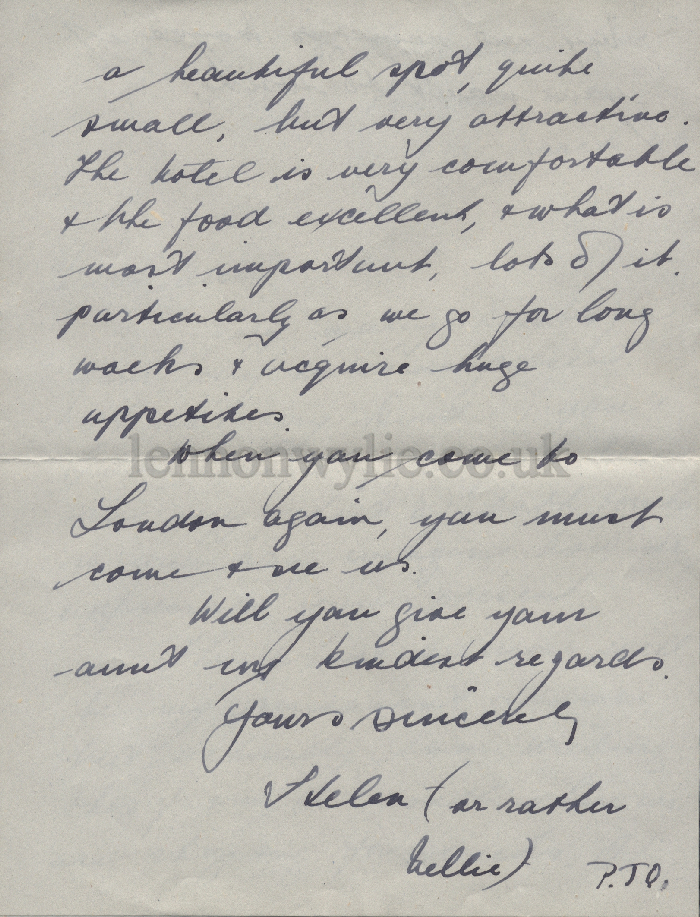 a beautiful spot, quite
small, but very attractive.
The hotel is very comfortable
& the food excellent, & what is
most important, lots of it,
particularly as we go for long
walks & acquire huge
appetites.
When you come to
lennonwylie.co.uk
London again, you must
come & see us.
Will you give your
aunt my kindest regards.
Yours sincerely
Helen (or rather
Nellie)
P.T.O.